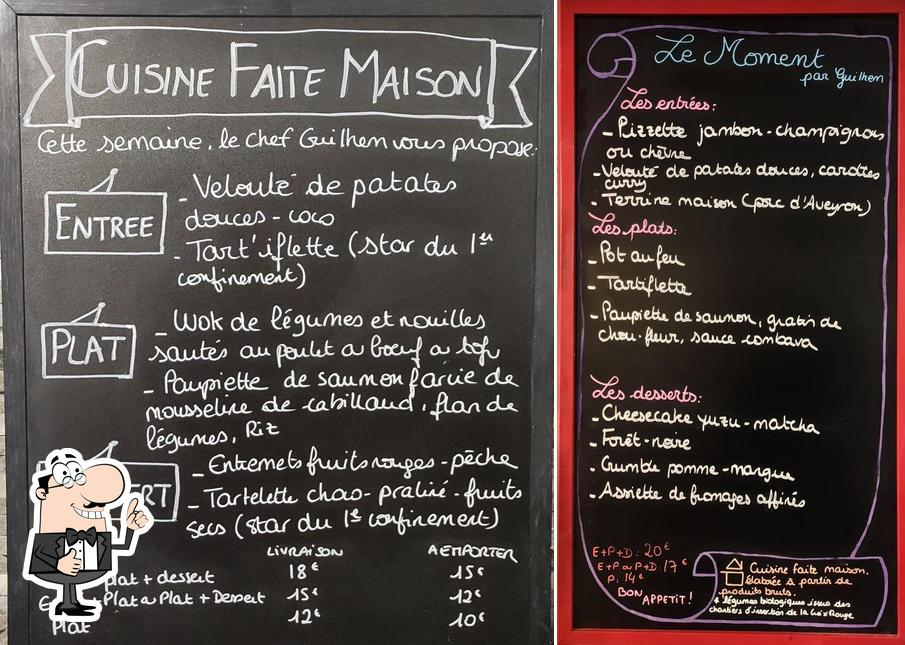 CUISINE FAITE MAISON
Cette semaine, le chef Guilhem vous propose:
ENTREE
- Velouté de patates
douces - coco
- Tart'iflette (star du 1er
confinement)
PLAT
- Wok de légumes et nouilles
sautés au poulet ou boeuf ou tofu
- Paupiette de saumon farcie de
mousseline de cabillaud, flan de
légumes, Riz
ERT
- Entremets fruits rouges - pêche
- Tartelette choco - praliné - fruits
secs (star du 1e confinement)
LIVRAISON A EMPORTER
plat + dessert 18€ 15€
Plat ou Plat + Dessert 15€ 12€
Plat 12€ 10€
Le Moment
par Guilhem
Les entrées:
- Pizzette jambon - champignons
ou chèvre
- Velouté de patates douces, carottes
curry
- Terrine maison (porc d'Aveyron)
Les plats:
- Pot au feu
- Tartiflette
- Paupiette de saumon, gratin de
chou-fleur, sauce combava
Les desserts:
- Cheesecake yuzu - matcha
- Forêt-noire
- Crumble pomme - mangue
- Assiette de fromages affinés
E+P+D: 20€
E+P ou P+D: 17€
P: 14€
BON APPETIT!
Cuisine faite maison,
élaborée à partir de
produits bruts.
& légumes biologiques issus des
chantiers d'insertion de la Croix Rouge